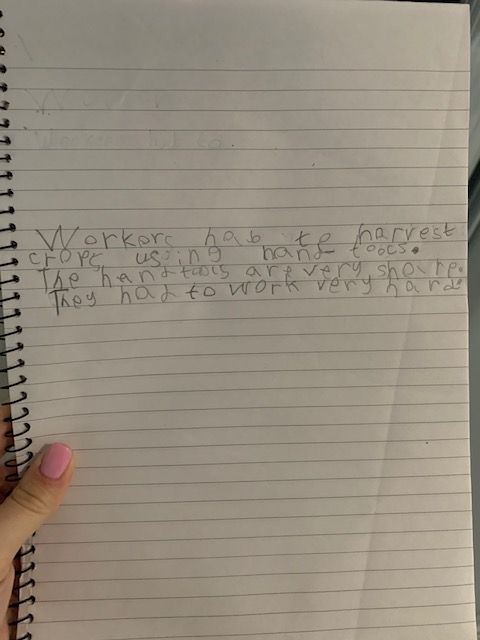 Workers hab to harvest
crops using hand tools.
The handtools are very sharpe.
They had to work very hard